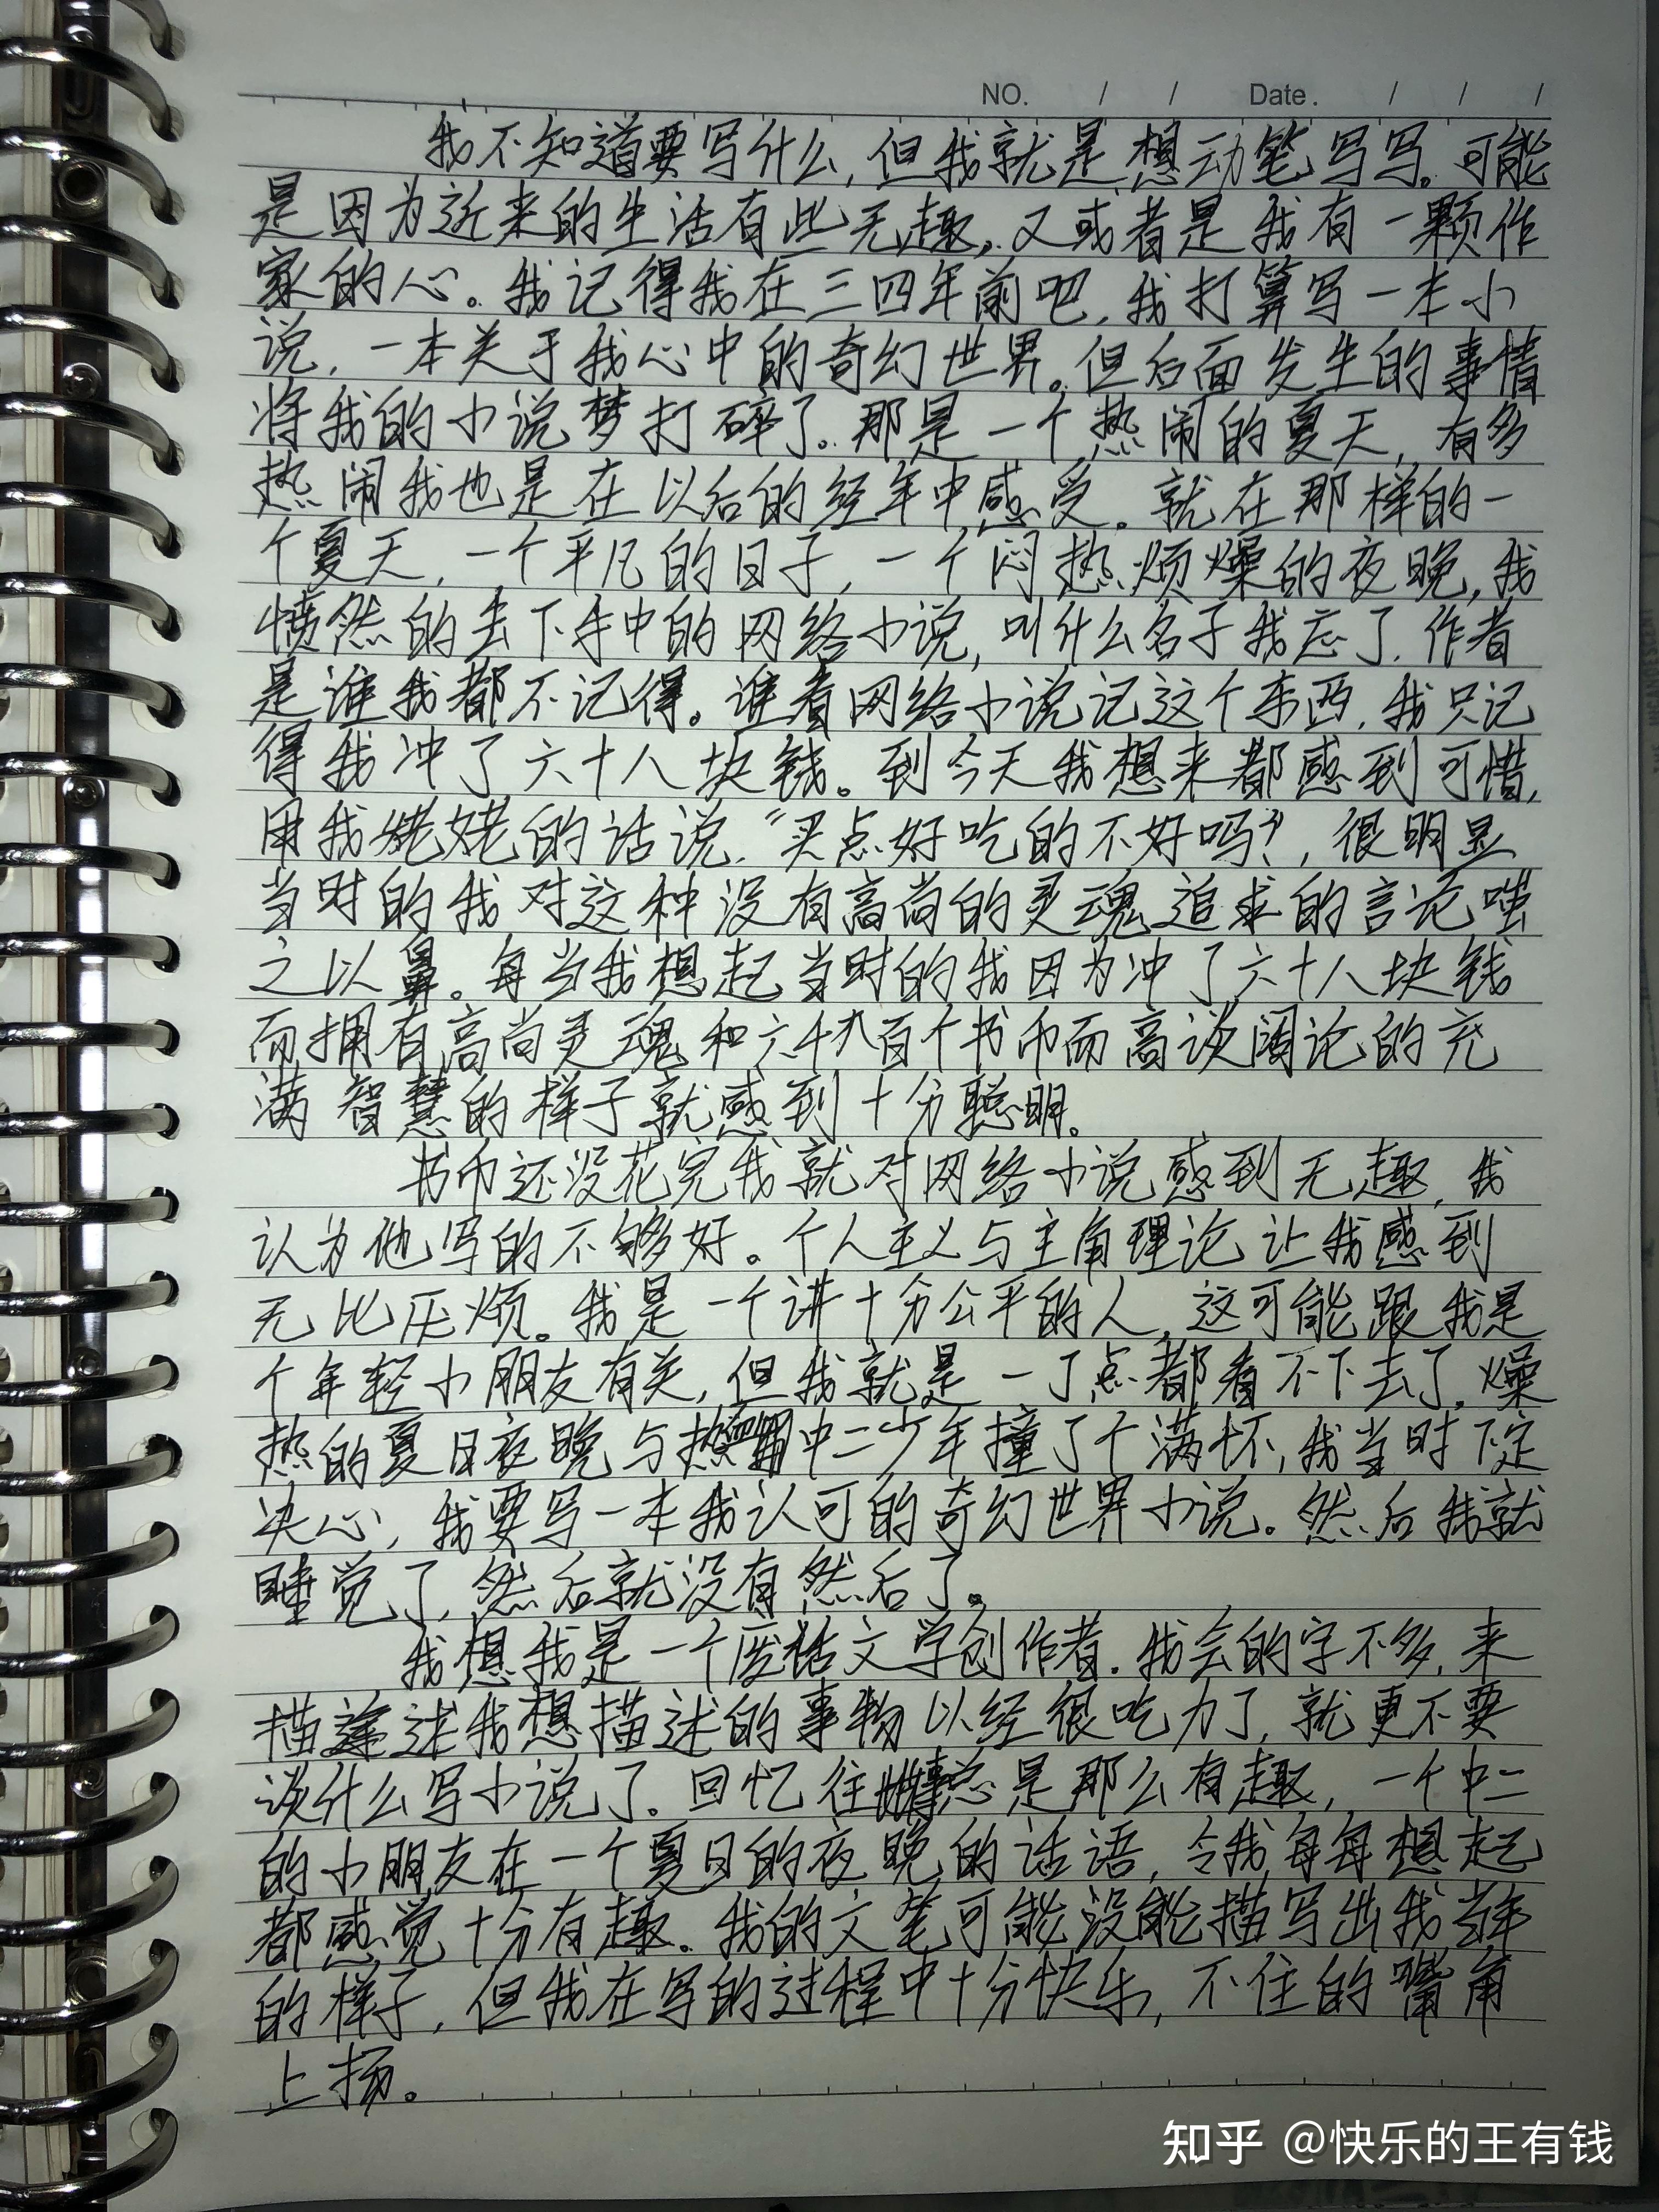 NO. / / Date. / / /
我不知道要写什么,但我就是想动笔写写。可能
是因为近来的生活有些无趣,又或者是我有一颗作
家的心。我记得我在三四年前吧,我打算写一本小
说,一本关于我心中的奇幻世界。但后面发生的事情
将我的小说梦打碎了。那是一个热闹的夏天,有多
热闹我也是在以后的经年中感受。就在那样的一
个夏天,一个平凡的日子,一个闷热烦燥的夜晚,我
愤然的丢下手中的网络小说,叫什么名子我忘了,作者
是谁我都不记得。谁看网络小说记这个东西,我只记
得我冲了六十八块钱。到今天我想来都感到可惜,
用我姥姥的话说,“买点好吃的不好吗?”,很明显
当时的我对这种没有高尚的灵魂追求的言论嗤
之以鼻。每当我想起当时的我因为冲了六十八块钱
而拥有高尚灵魂和六千八百个书币而高谈阔论的充
满智慧的样子就感到十分聪明。
书币还没花完我就对网络小说感到无趣,我
认为他写的不够好。个人主义与主角理论让我感到
无比厌烦。我是一个讲十分公平的人,这可能跟我是
个年轻小朋友有关,但我就是一丁点都看不下去了。燥
热的夏日夜晚与热中二少年撞了个满怀,我当时下定
决心,我要写一本我认可的奇幻世界小说。然后我就
睡觉了,然后就没有然后了。
我想我是一个废话文学创作者。我会的字不多,来
描述我想描述的事物以经很吃力了,就更不要
谈什么写小说了。回忆往事总是那么有趣,一个中二
的小朋友在一个夏日的夜晚的话语,令我每每想起
都感觉十分有趣。我的文笔可能没能描写出我当年
的样子,但我在写的过程中十分快乐,不住的嘴角
上扬。
知乎 @快乐的王有钱